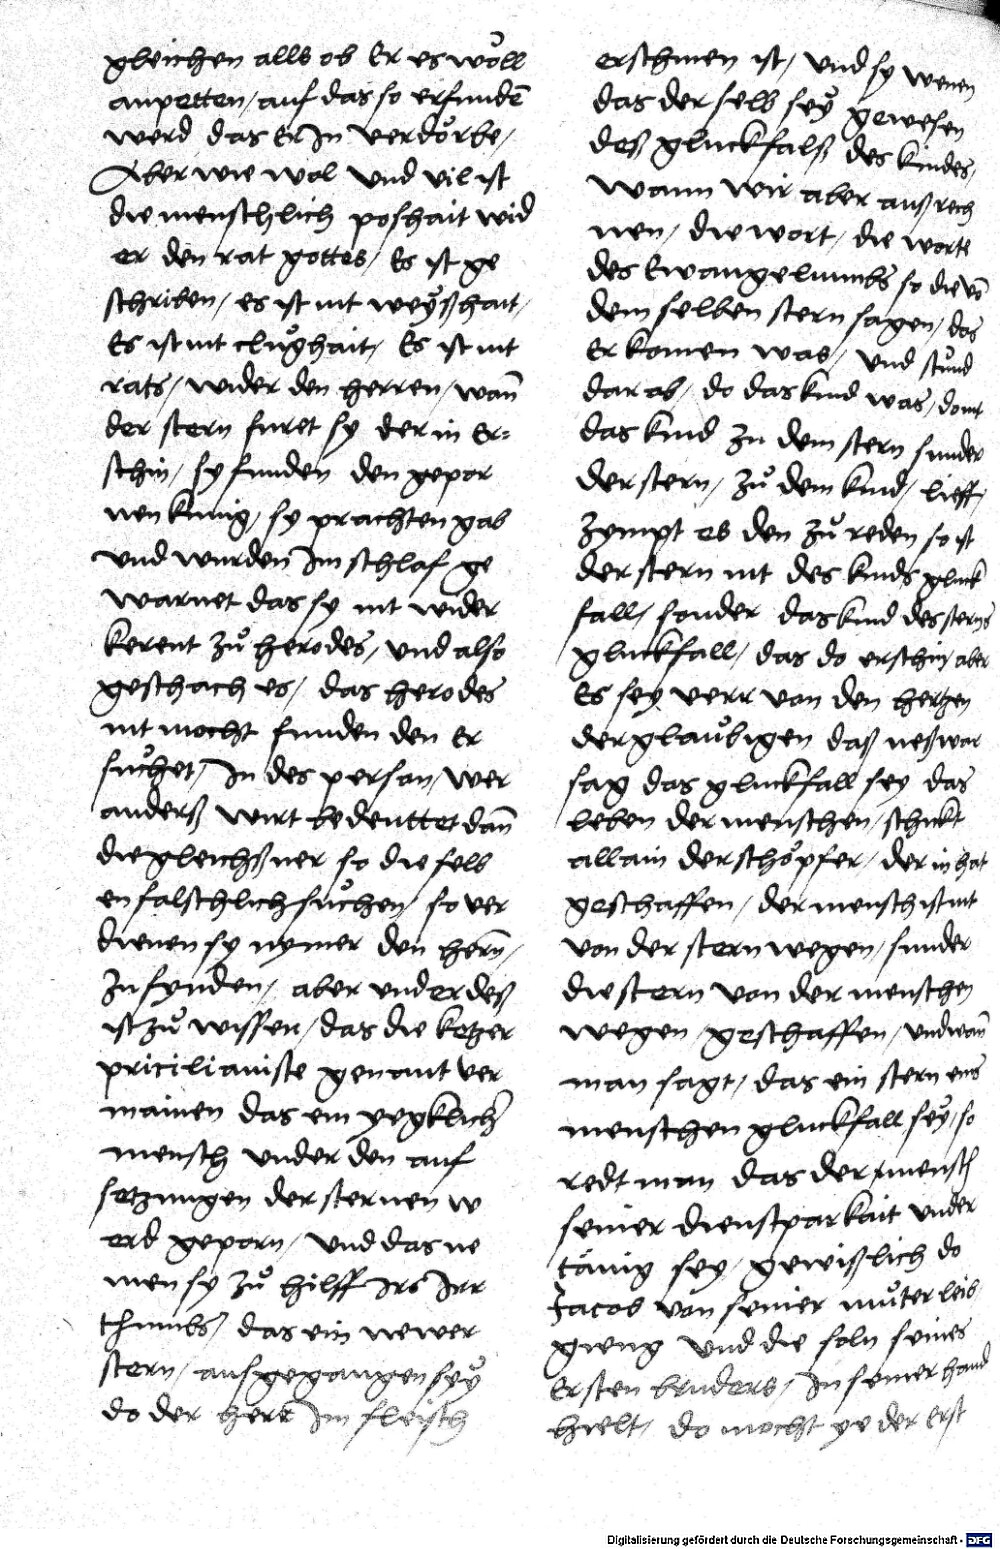 gleichen alls ob Er es wöll
anpetten / auf das so erfundē
werd das Er Jn verdörbe /
Aber wie wol vnd vil ist
die menschlich poshait wid
er den rat gottes / Es ist ge
schriben / es ist nit weÿßhait /
Es ist nit clůghait / Es ist nit
rats / wider den herren / wañ
der stern furet sy der in Er-
schin / sy funden den gepor
nen kunig / sy prachten gab
vnd wurden Jm schlaf ge
warnet das sy nit wider
kerent zů herodes / vnd also
geschach es / das herodes
nit mocht funden den Er
sůchet / Jn des person / wer
anderß wirt bedeuttet dañ
die gleichßner so die selb
en falschlich sůchen / so ver
dienen sy nymer den herñ /
zu fynden / aber vnder deß
ist zů wissen / das die ketzer
priciliauiste genant ver
mainen das ein yegklich
mensch vnder den auf
setzungen der sternen w
erd geporn / vnd das ne
men sy zů hilff irs Jrr
thumbs / das ein newer
stern / aufgegangen sey
do der herr Jm fleisch
erschinen ist / vnd sy wenen
das der selb seÿ gewesen
deß gluckfalß des kindes /
wann wir aber auß rech
nen / die wort / die worte
des Ewangeliumbs so die võ
dem selben stern sagen / das
Er komen was / vnd stund
dar ob / do das kind was / domit
das kind zu dem stern sunder
der stern / zů dem kind / lieff /
zympt es den zů reden so ist
der stern nit des kinds gluck
fall / sonder das kind des sterns
gluckfall / das do erschin / aber
Es sey verr von den hertzen
der glaubigen daß neßwar
sag das gluckfall sey das
leben der menschen / schickt
allain der schöpfer / der in hat
geschaffen / der mensch ist nit
von der stern wegen / sunder
die stern von der menschen
wegen / geschaffen / vnd wañ
man sagt / das ein stern eins
menschen gluckfall seÿ / so
redt man das der mensch
seiner dienstparkait vnder
tänig sey / gewißlich do
Jacob von seiner můter leib
gieng vnd die soln seines
Ersten bruders / Jn seiner hand
hielt / do mocht ye der erst
Digitalisierung gefördert durch die Deutsche Forschungsgemeinschaft - DFG